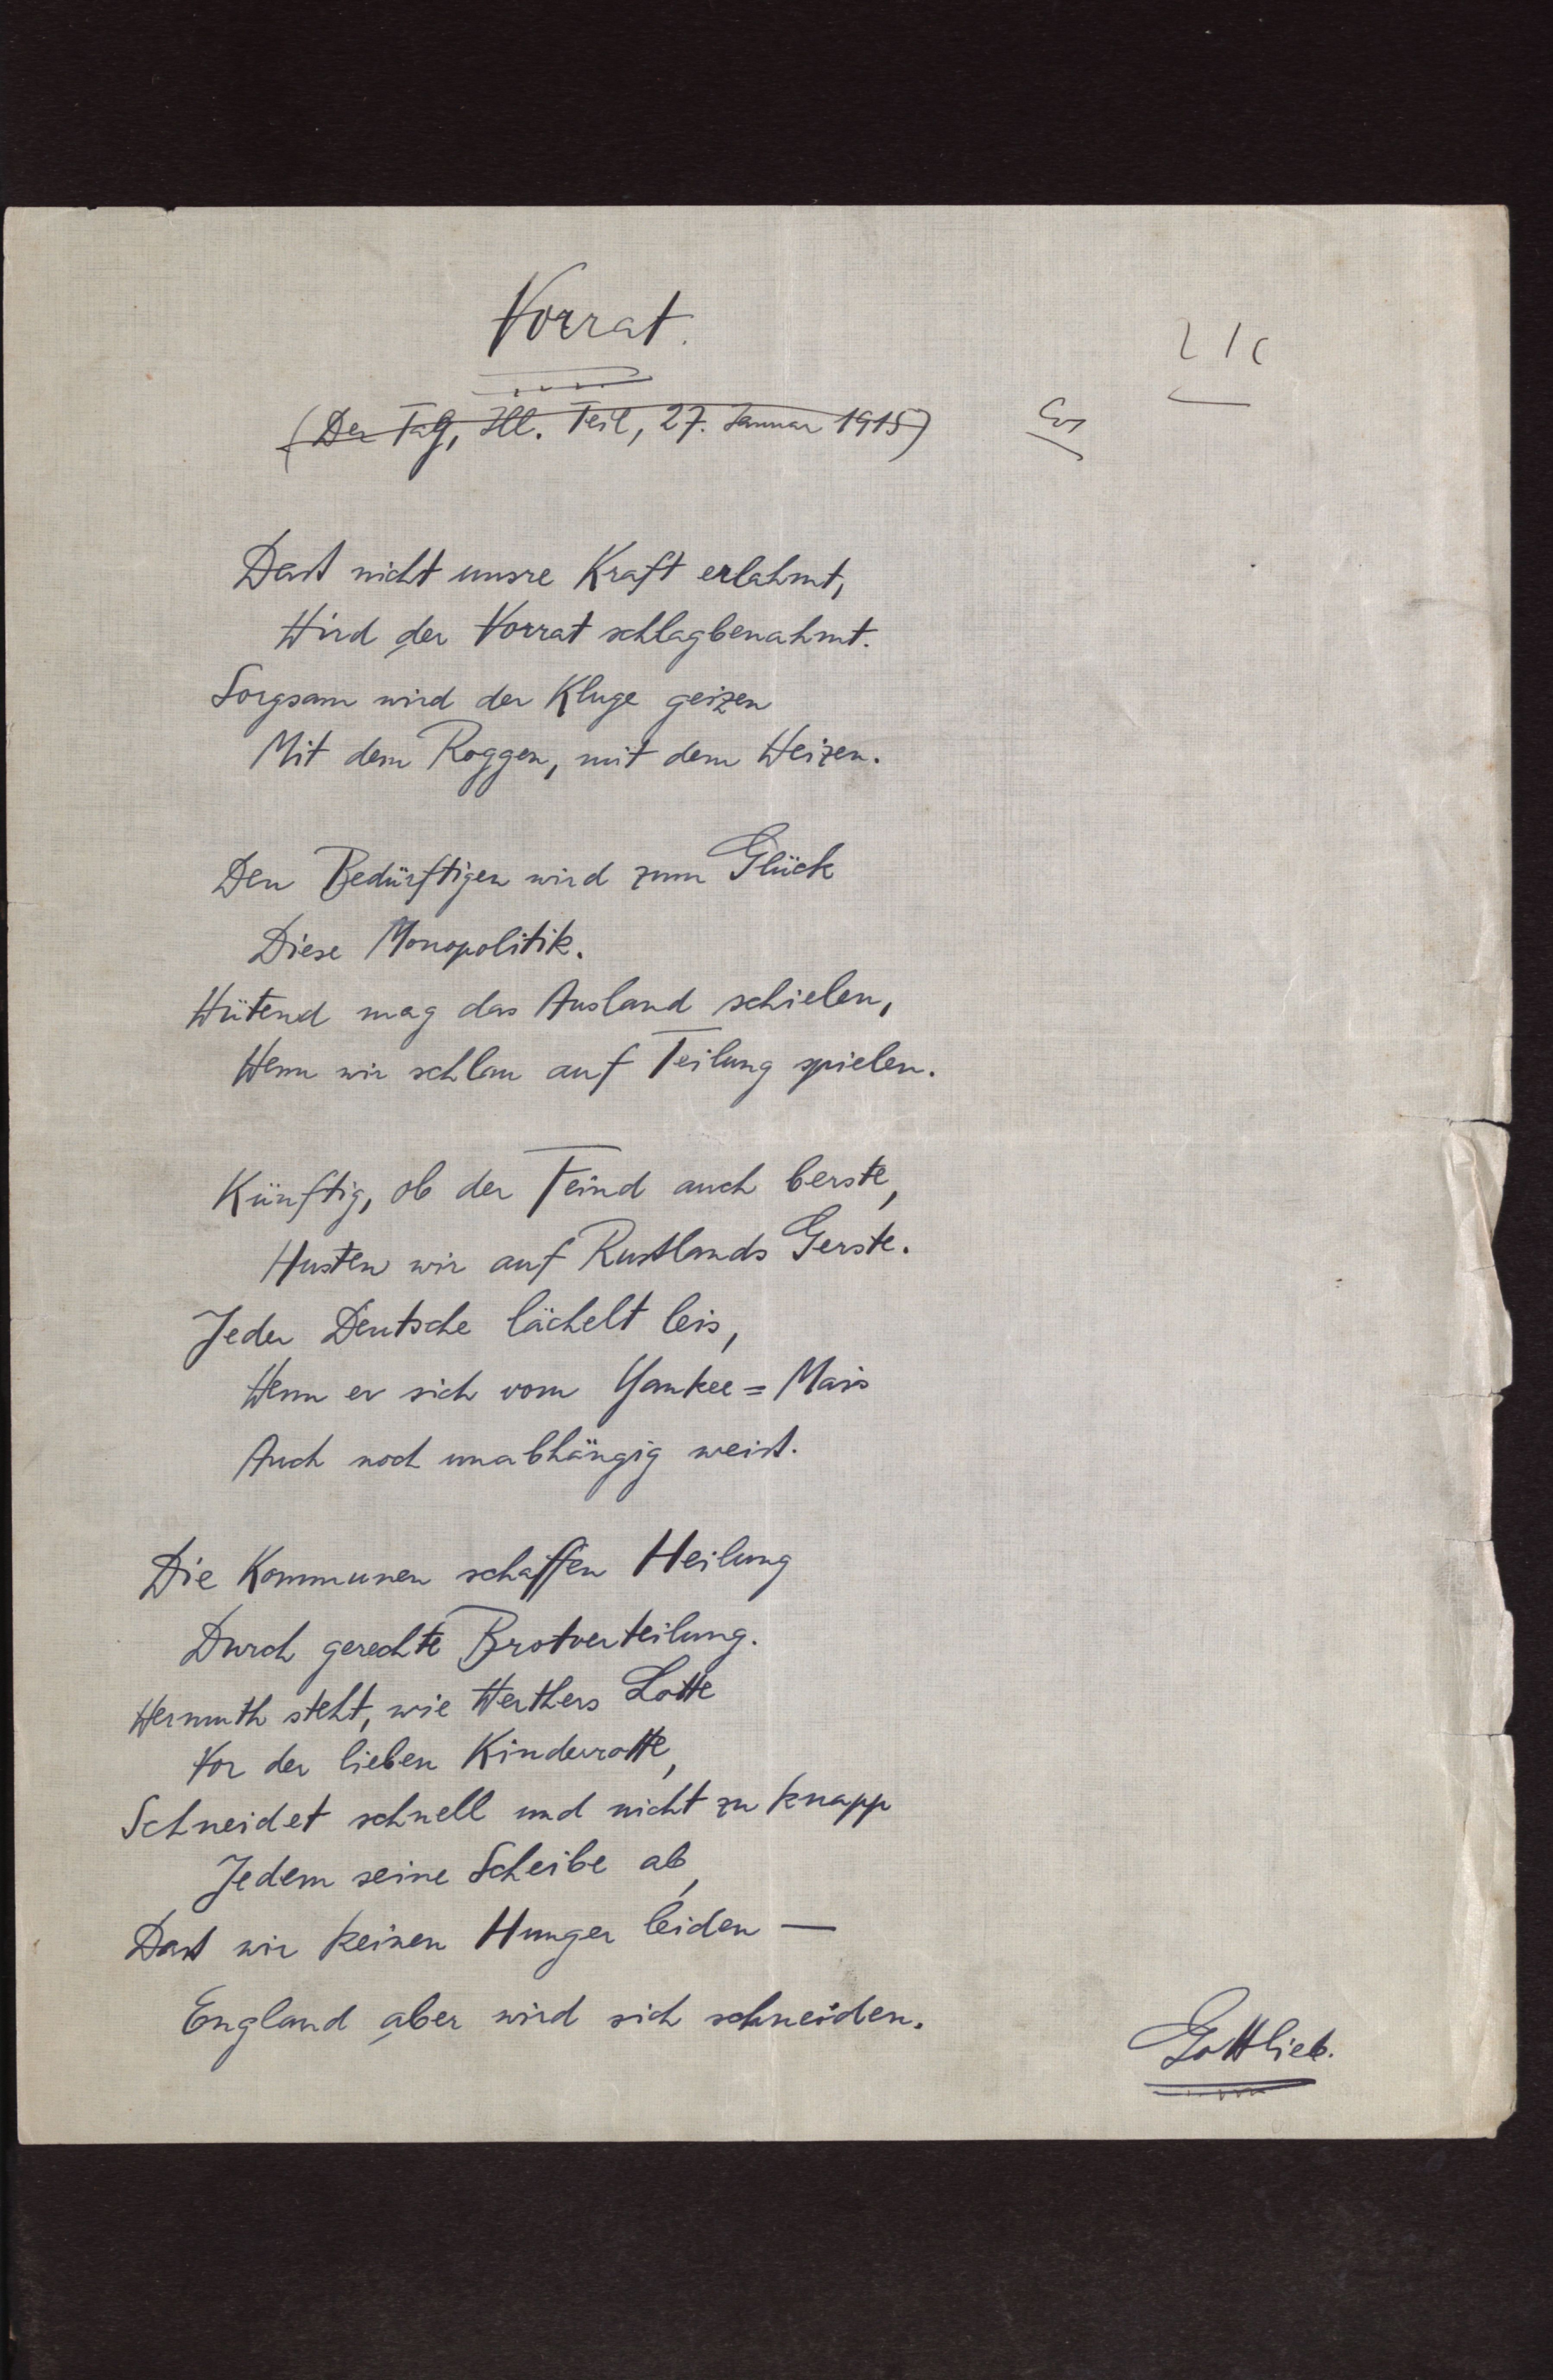 Vorrat.
(Der Tag, Ill. Teil, 27. Januar 1915)
Daß nicht unsre Kraft erlahmt,
Wird der Vorrat schlagbenahmt.
Sorgsam wird der Kluge geizen
Mit dem Roggen, mit dem Weizen.
Den Bedürftigen wird zum Glück
Diese Monopolitik.
Wütend mag das Ausland schielen,
Wenn wir schlau auf Teilung spielen.
Künftig, ob der Feind auch berste,
Husten wir auf Rußlands Gerste.
Jeder Deutsche lächelt leis,
Wenn er sich vom Yankee=Mais
Auch noch unabhängig weiß.
Die Kommunen schaffen Heilung
Durch gerechte Brotverteilung.
Wermuth steht, wie Werthers Lotte
Vor der lieben Kinderrotte,
Schneidet schnell und nicht zu knapp
Jedem seine Scheibe ab,
Daß wir keinen Hunger leiden —
England aber wird sich schneiden.
Gottlieb.